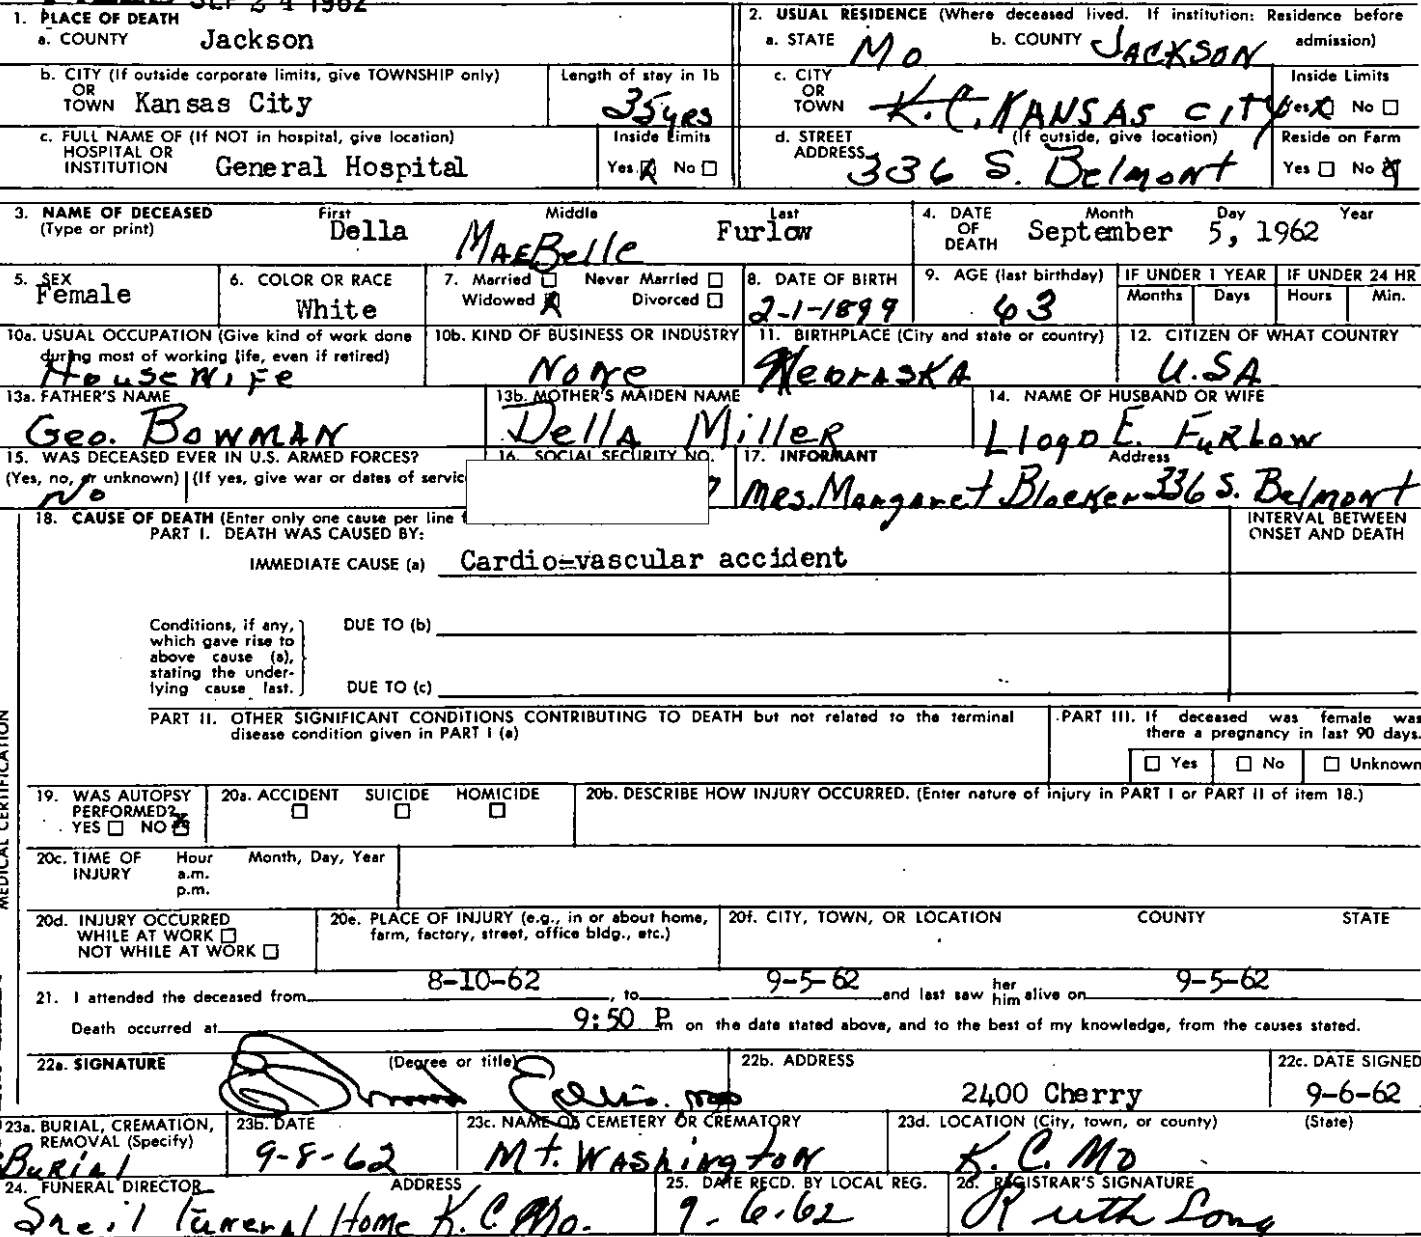 SEP 24 1962
1. PLACE OF DEATH
a. COUNTY Jackson
2. USUAL RESIDENCE (Where deceased lived. If institution: Residence before admission)
a. STATE Mo b. COUNTY JACKSON
b. CITY (If outside corporate limits, give TOWNSHIP only) OR TOWN Kansas City
Length of stay in 1b 35 yrs
c. CITY OR TOWN K.C. KANSAS CITY
Inside Limits Yes ☒ No ☐
c. FULL NAME OF (If NOT in hospital, give location) HOSPITAL OR INSTITUTION General Hospital
Inside Limits Yes ☒ No ☐
d. STREET ADDRESS (If outside, give location) 336 S. Belmont
Reside on Farm Yes ☐ No ☒
3. NAME OF DECEASED (Type or print) First Della Middle MAEBelle Last Furlow
4. DATE OF DEATH Month Day Year September 5, 1962
5. SEX Female
6. COLOR OR RACE White
7. Married ☐ Never Married ☐ Widowed ☒ Divorced ☐
8. DATE OF BIRTH 2-1-1899
9. AGE (last birthday) 63
IF UNDER 1 YEAR Months Days
IF UNDER 24 HR Hours Min.
10a. USUAL OCCUPATION (Give kind of work done during most of working life, even if retired) HouseWiFe
10b. KIND OF BUSINESS OR INDUSTRY None
11. BIRTHPLACE (City and state or country) NebrASKA
12. CITIZEN OF WHAT COUNTRY U.SA
13a. FATHER'S NAME Geo. BOWMAN
13b. MOTHER'S MAIDEN NAME DellA MilleR
14. NAME OF HUSBAND OR WIFE LloyD E. FuRLow
15. WAS DECEASED EVER IN U.S. ARMED FORCES?
(Yes, no, or unknown) (If yes, give war or dates of servic
No
16. SOCIAL SECURITY NO. 7
17. INFORMANT Address
MRS. Margaret Blocker 336 S. Belmont
18. CAUSE OF DEATH (Enter only one cause per line
PART I. DEATH WAS CAUSED BY:
INTERVAL BETWEEN ONSET AND DEATH
IMMEDIATE CAUSE (a) Cardio-vascular accident
Conditions, if any, which gave rise to above cause (a), stating the under-lying cause last.
DUE TO (b)
DUE TO (c)
PART II. OTHER SIGNIFICANT CONDITIONS CONTRIBUTING TO DEATH but not related to the terminal disease condition given in PART I (a)
PART III. If deceased was female was there a pregnancy in last 90 days.
☐ Yes ☐ No ☐ Unknown
MEDICAL CERTIFICATION
19. WAS AUTOPSY PERFORMED? YES ☐ NO ☒
20a. ACCIDENT ☐ SUICIDE ☐ HOMICIDE ☐
20b. DESCRIBE HOW INJURY OCCURRED. (Enter nature of injury in PART I or PART II of item 18.)
20c. TIME OF INJURY Hour a.m. p.m. Month, Day, Year
20d. INJURY OCCURRED WHILE AT WORK ☐ NOT WHILE AT WORK ☐
20e. PLACE OF INJURY (e.g., in or about home, farm, factory, street, office bldg., etc.)
20f. CITY, TOWN, OR LOCATION COUNTY STATE
21. I attended the deceased from 8-10-62, to 9-5-62 and last saw her him alive on 9-5-62
Death occurred at 9:50 P m on the date stated above, and to the best of my knowledge, from the causes stated.
22a. SIGNATURE (Degree or title)
22b. ADDRESS 2400 Cherry
22c. DATE SIGNED 9-6-62
23a. BURIAL, CREMATION, REMOVAL (Specify) BuRiAl
23b. DATE 9-8-62
23c. NAME OF CEMETERY OR CREMATORY Mt. WAShington
23d. LOCATION (City, town, or county) (State) K.C. MO
24. FUNERAL DIRECTOR ADDRESS
Sheil Funeral Home K.C. Mo.
25. DATE RECD. BY LOCAL REG. 9-6-62
26. REGISTRAR'S SIGNATURE Ruth Long